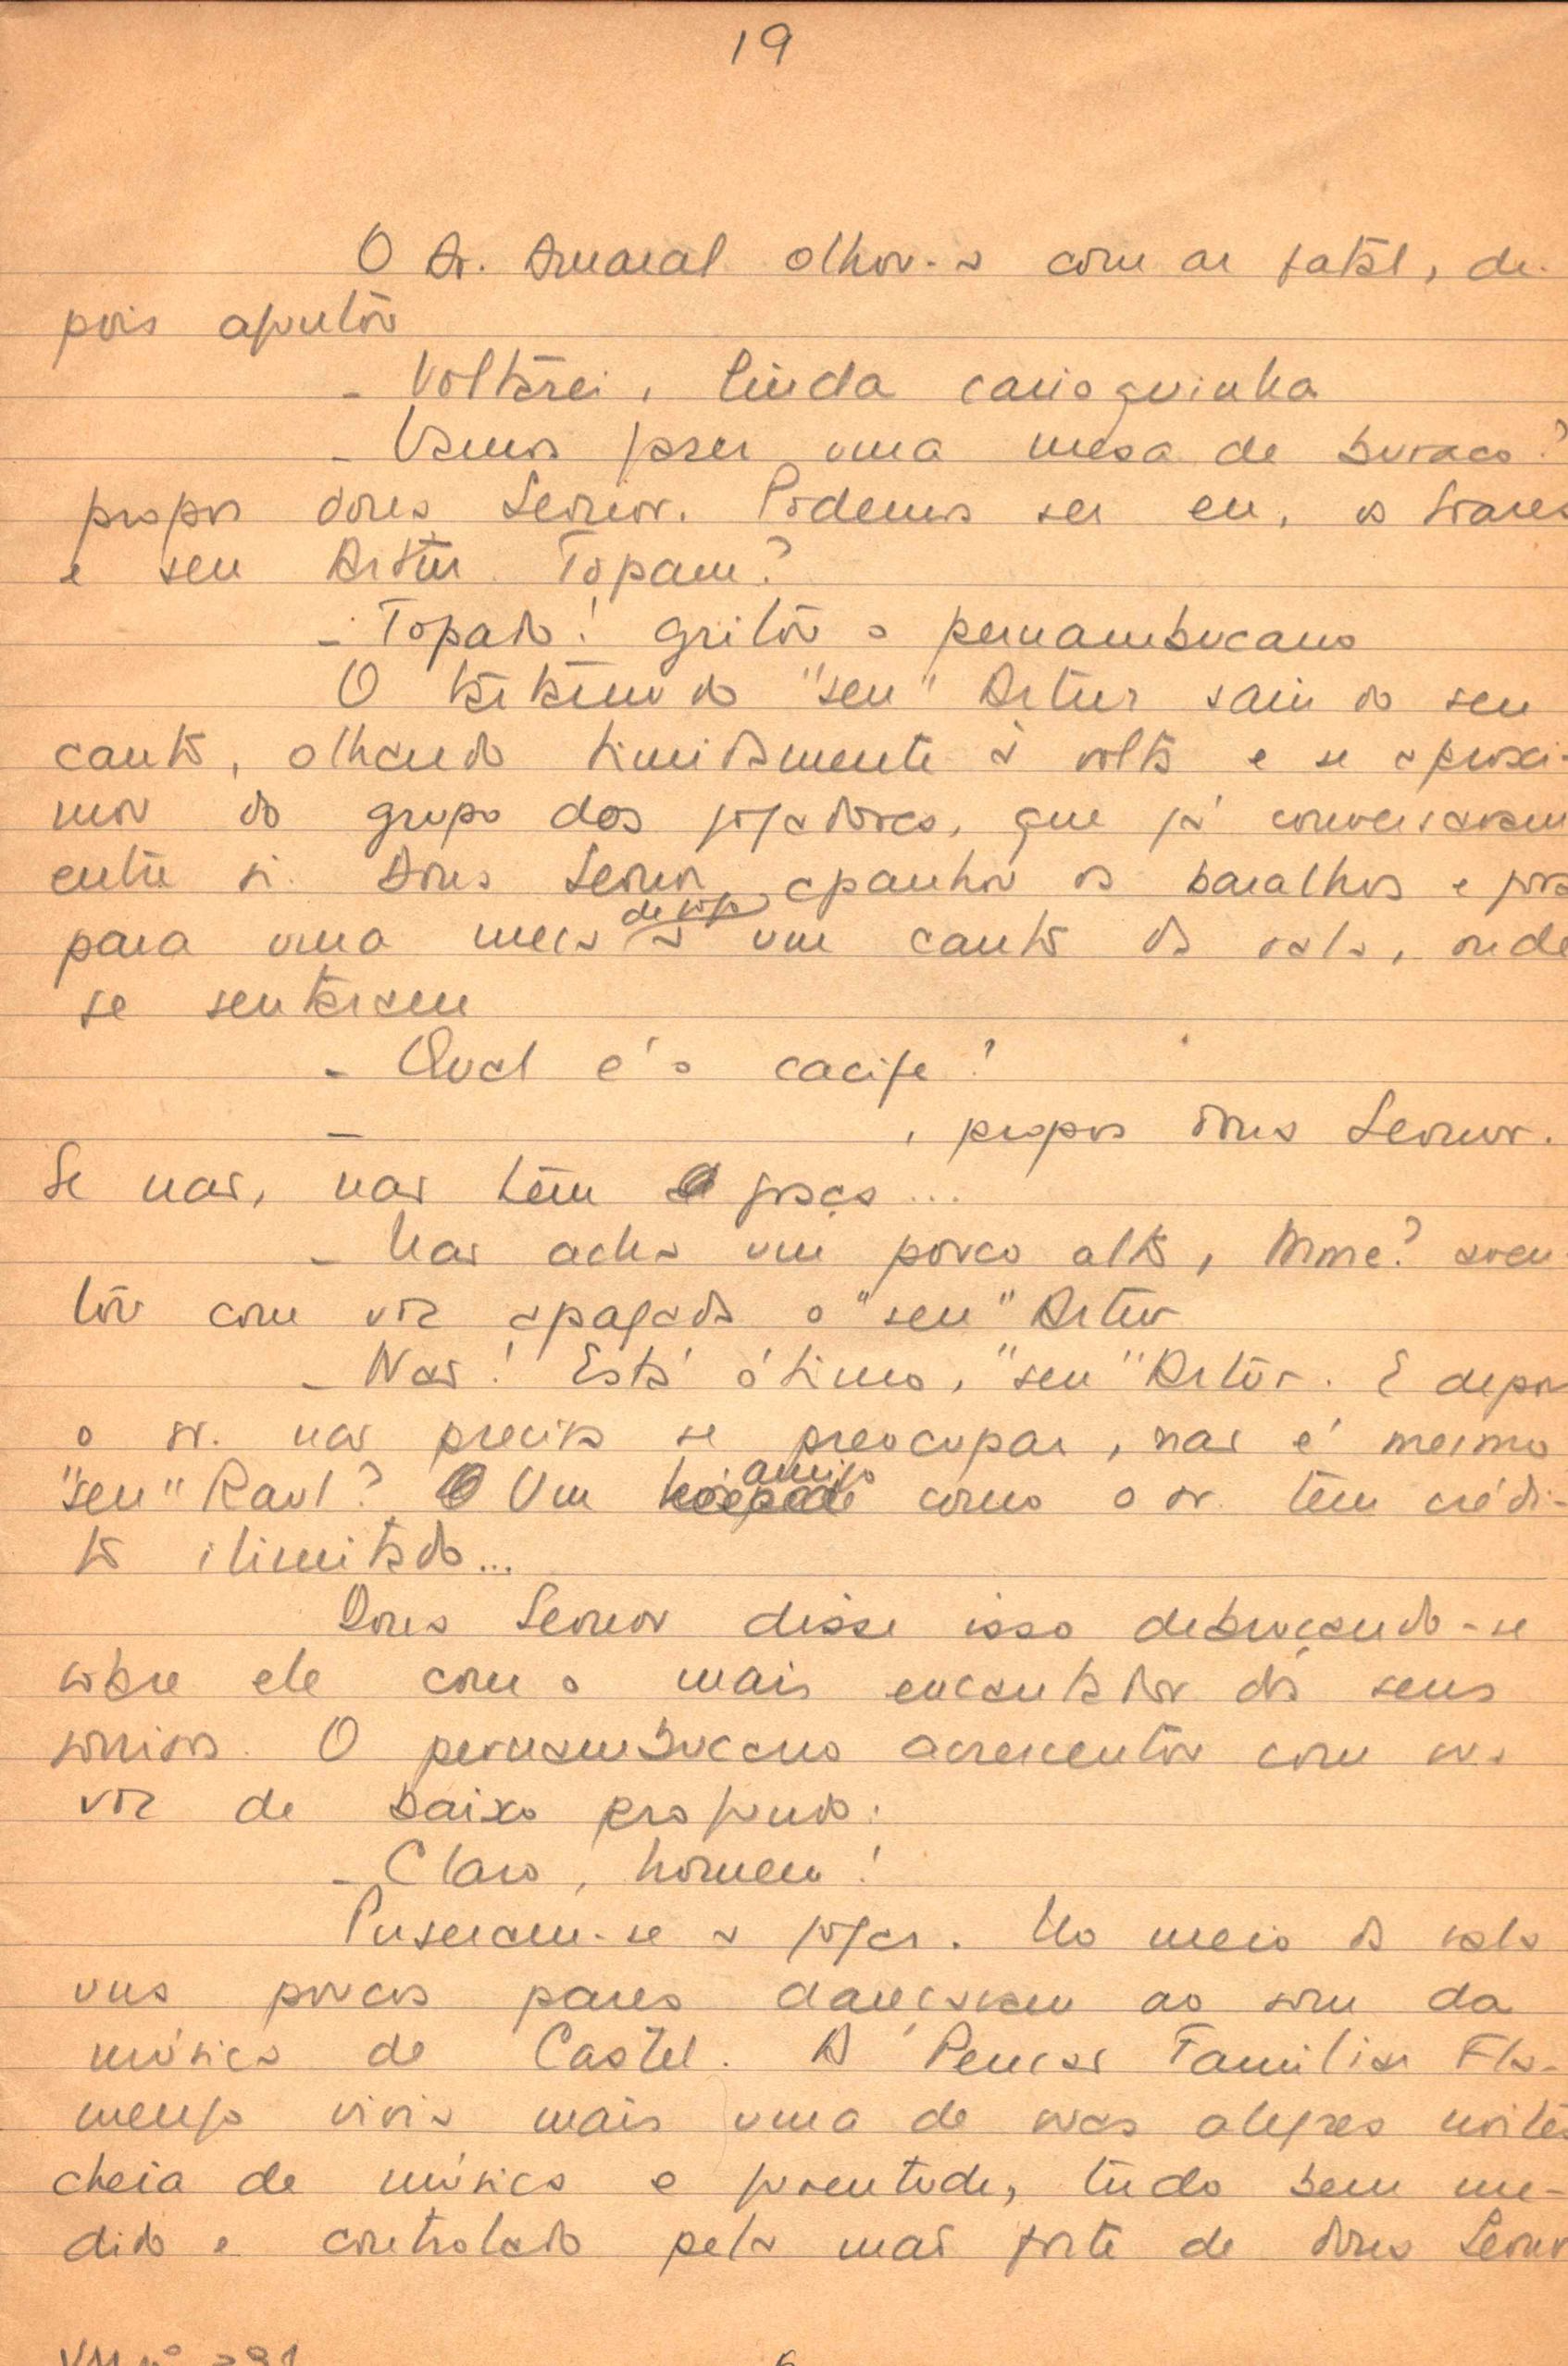 19
O Dr. Amaral olhou-a com ar fatal, de-
pois
- Voltarei, linda carioquinha
- Vamos fazer uma mesa de buraco?
propos dona Leonor. Podemos ser eu, os Soares
e seu Artur. Topam?
- Topado! gritou o pernambucano
O "seu" Artur saiu do seu
canto, olhando timidamente à volta e se aproxi-
mou do grupo dos jogadores, que já conversavam
entre si. Dona Leonor apanhou os baralhos e foi
de jogo
para uma mesa a um canto da sala, onde
se sentaram
- Qual é o cacife?
- , propos dona Leonor.
Se não, não tem graça...
- Não acha um pouco alto, Mme? aven-
tou com voz apagada o "seu" Artur
- Não! Está ótimo, "seu" Artur. E depois
o sr. não precisa se preocupar, não é mesmo
amigo
"seu" Raul? Um hóspede como o sr. tem crédi-
to ilimitado...
Dona Leonor disse isso debruçando-se
sobre ele com o mais encantador dos seus
sorrisos. O pernambucano acrescentou com sua
voz de baixo profundo:
- Claro, homem!
Puseram-se a jogar. No meio da sala
uns poucos pares dançavam ao som da
música de Castel. A Pensão Familiar Fla-
mengo vivia mais uma de suas alegres noites
cheia de música e juventude, tudo bem me-
dido e controlado pela mão forte de dona Leonor